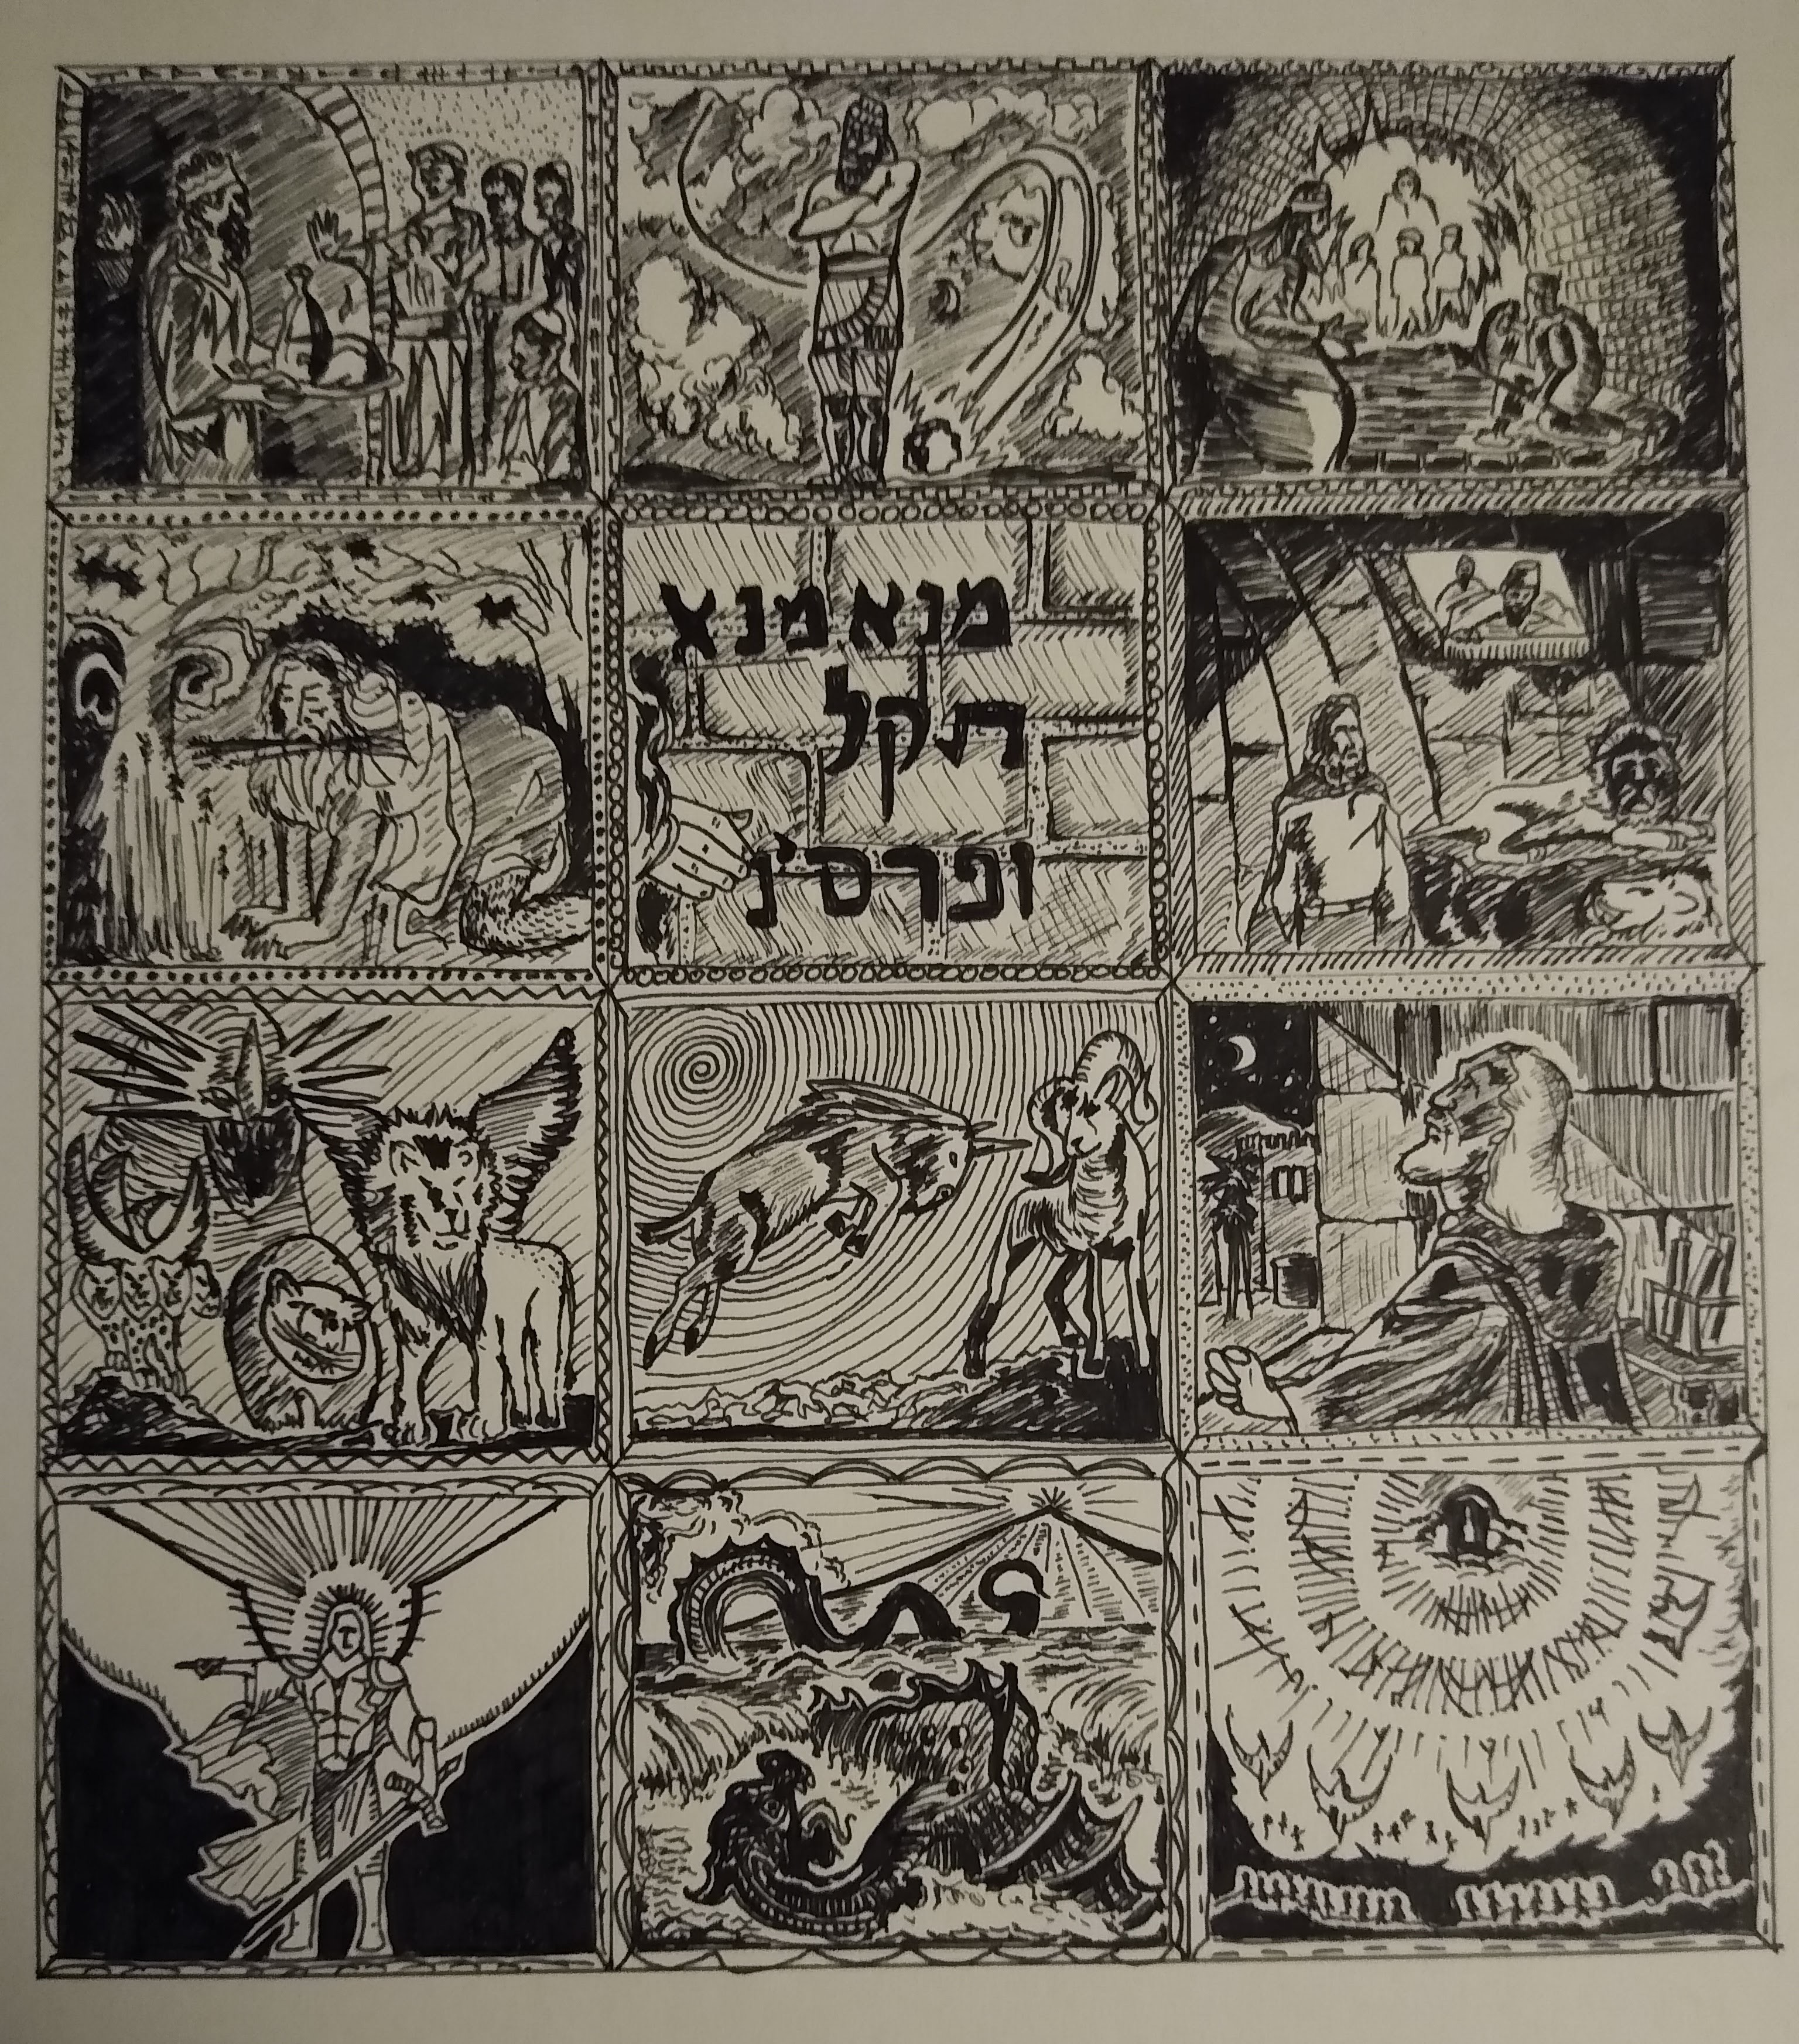 מנא מנא
תקל
ופרסינ